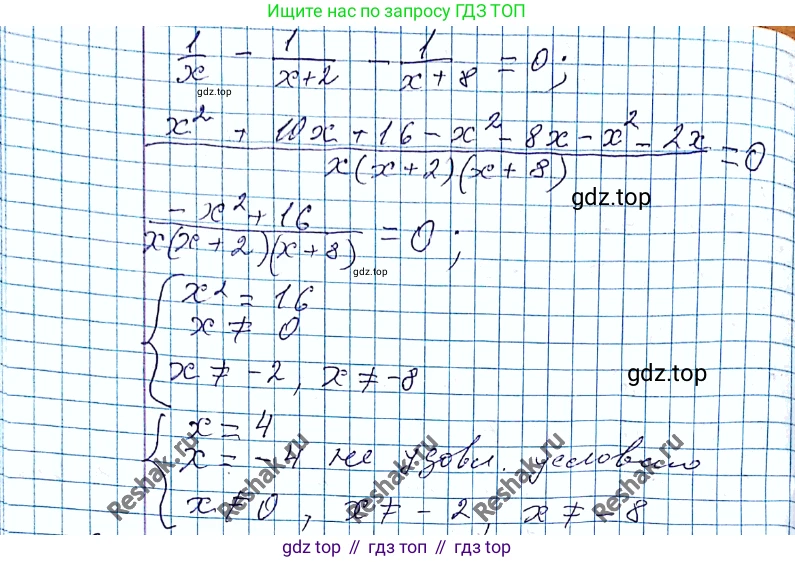 Ищите нас по запросу ГДЗ ТОП
1/x - 1/(x+2) - 1/(x+8) = 0;
gdz.top
(x² + 10x + 16 - x² - 8x - x² - 2x)/(x(x+2)(x+8)) = 0
gdz.top
(-x² + 16)/(x(x+2)(x+8)) = 0;
gdz.top
x² = 16
x ≠ 0
x ≠ -2, x ≠ -8
gdz.top
x = 4
x = -4 не удовл. условию
x ≠ 0, x ≠ -2, x ≠ -8
Reshak.ru Reshak.ru Reshak.ru Reshak.ru Reshak.ru
gdz top // гдз топ // gdz top